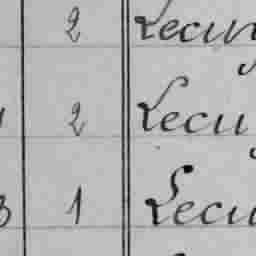 2 Lecu
2 Lecu
3 1 Lecu